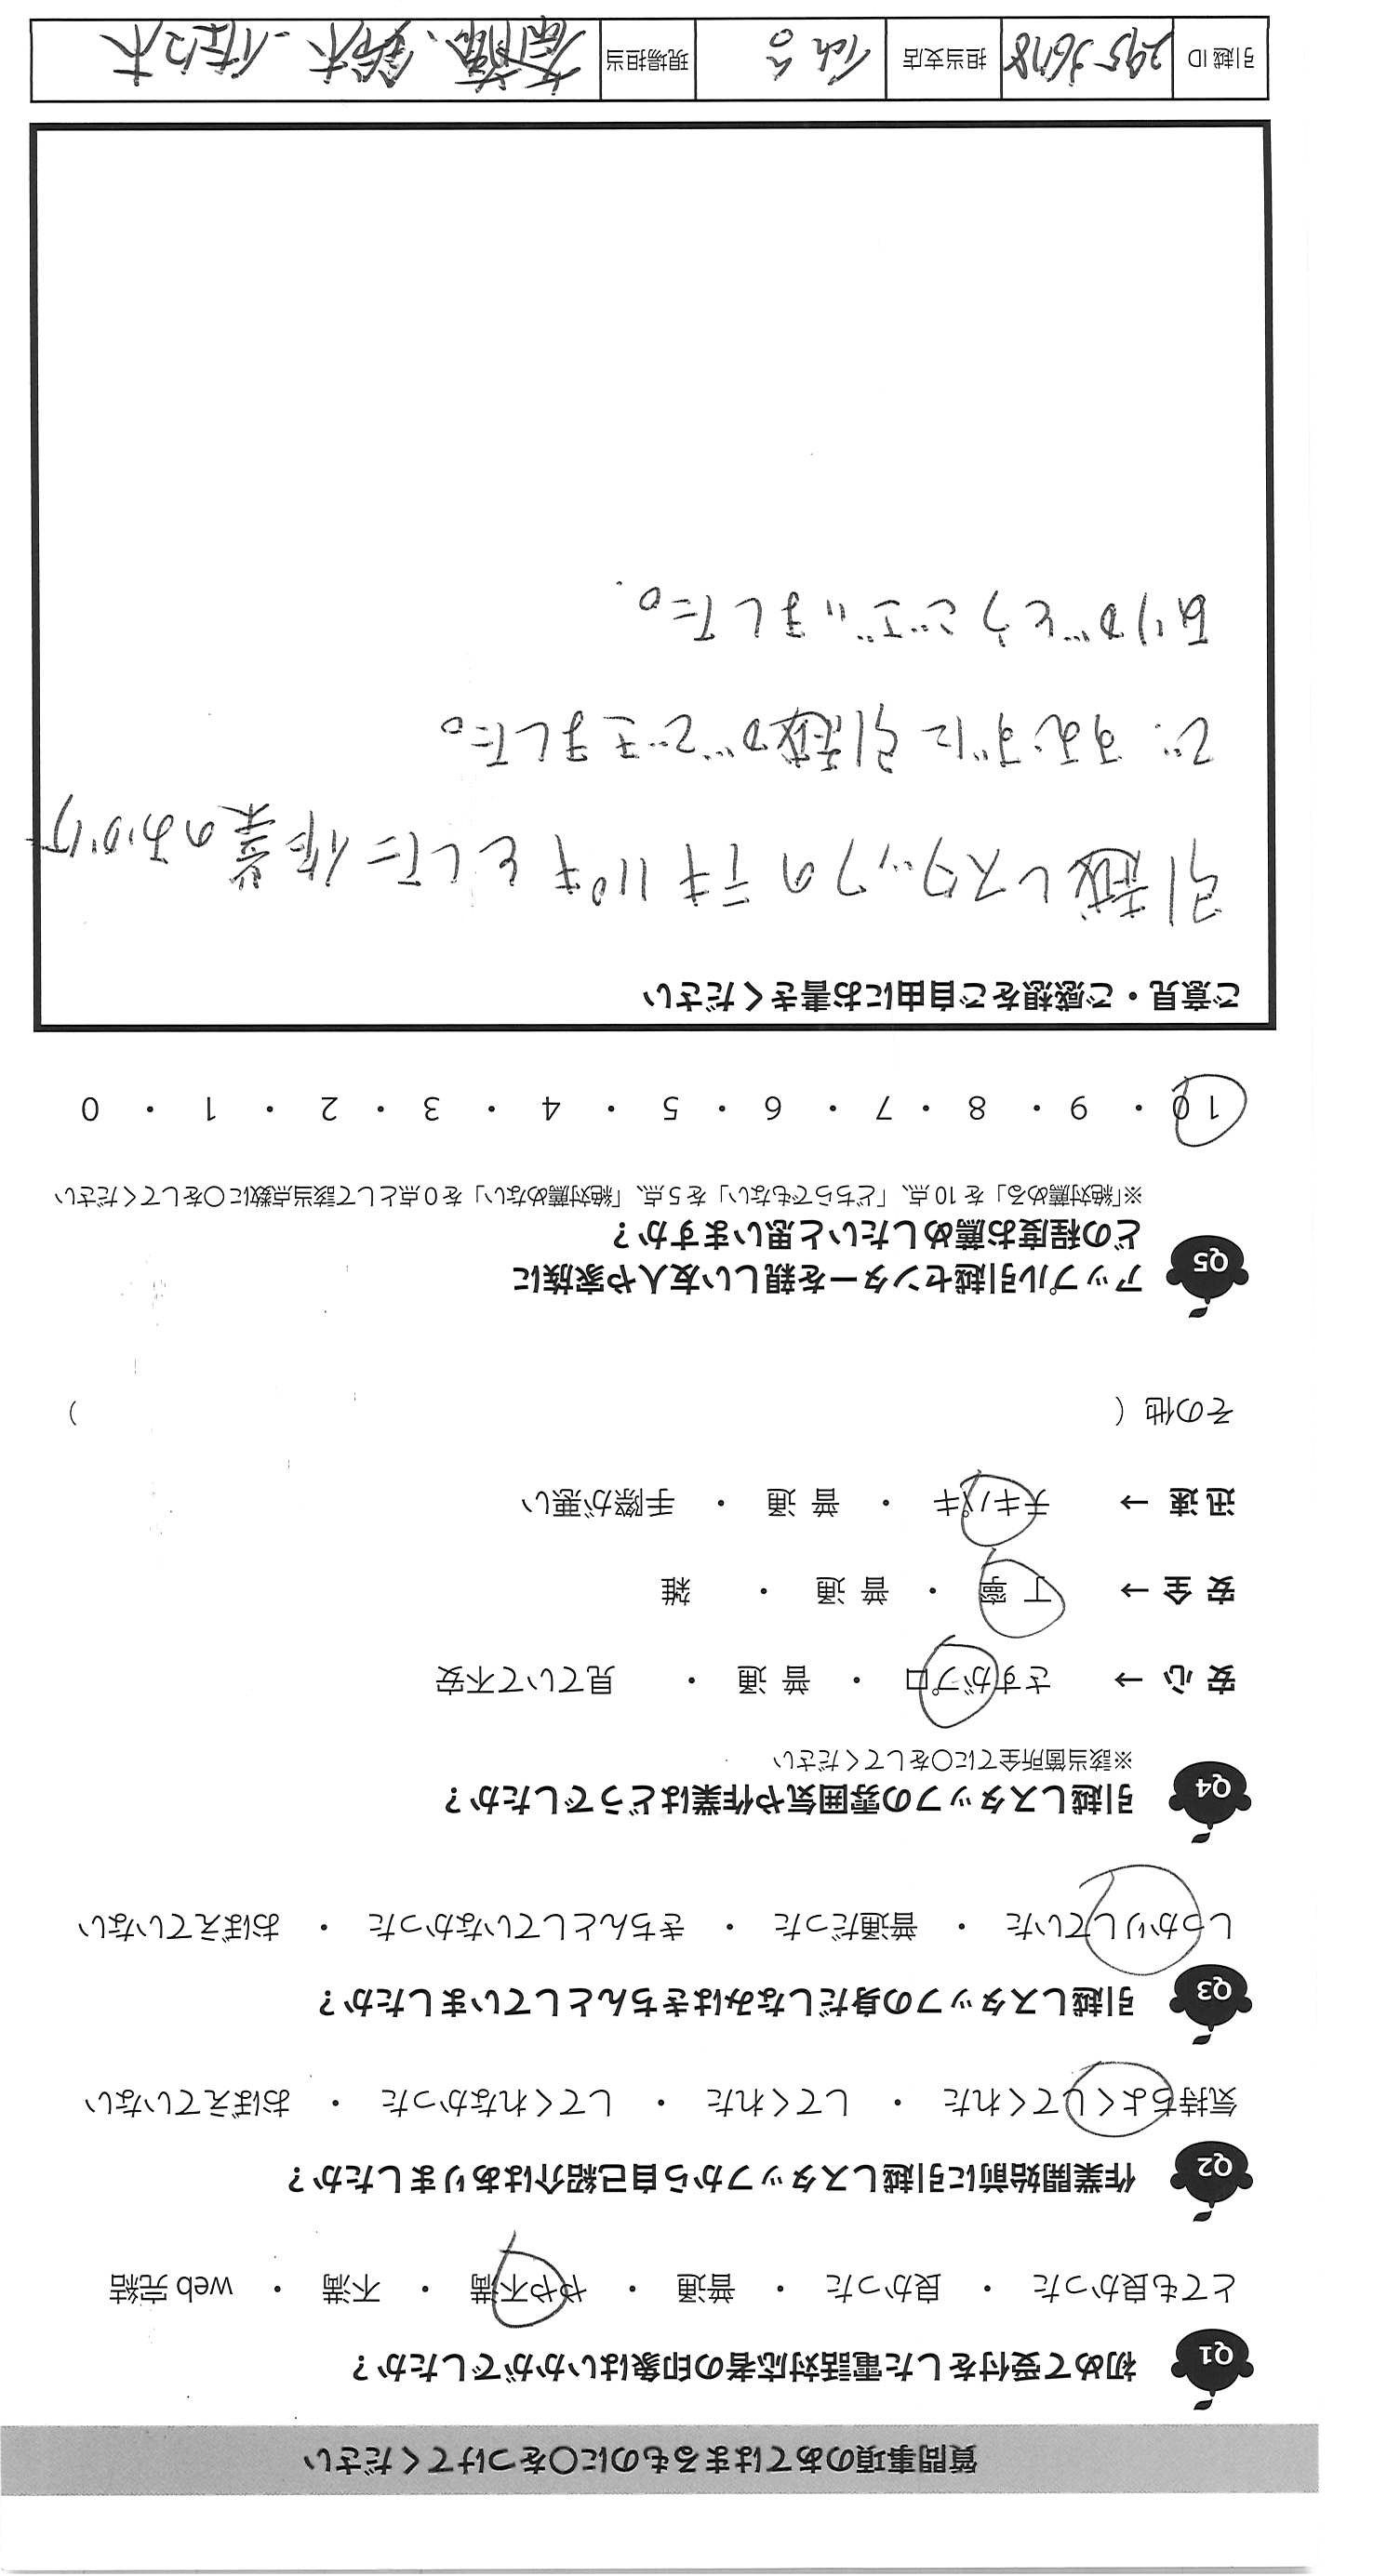 質問事項のあてはまるものに〇をつけてください
Q1 初めて受付をした電話対応者の印象はいかがでしたか？
とても良かった ・ 良かった ・ 普通 ・ やや不満 ・ 不満 ・ web 完結
Q2 作業開始前に引越しスタッフから自己紹介はありましたか？
気持ちよくしてくれた ・ してくれた ・ してくれなかった ・ おぼえていない
Q3 引越しスタッフの身だしなみはきちんとしていましたか？
しっかりしていた ・ 普通だった ・ きちんとしていなかった ・ おぼえていない
Q4 引越しスタッフの雰囲気や作業はどうでしたか？
※該当箇所全てに〇をしてください
安 心 → さすがプロ ・ 普 通 ・ 見ていて不安
安 全 → 丁 寧 ・ 普 通 ・ 雑
迅 速 → テキパキ ・ 普 通 ・ 手際が悪い
その他 （ ）
Q5 アップル引越センターを親しい友人や家族に
どの程度お薦めしたいと思いますか？
※「絶対薦める」を 10 点、「どちらでもない」を 5 点、「絶対薦めない」を 0 点として該当点数に〇をしてください
10 ・ 9 ・ 8 ・ 7 ・ 6 ・ 5 ・ 4 ・ 3 ・ 2 ・ 1 ・ 0
ご意見・ご感想をご自由にお書きください
引越しスタッフのテキパキとした作業のおかげ
で、すむずに引越ができました。
ありがとうございました。
引越 ID 295-3678 担当支店 現場担当 斎藤、鈴木、佐々木